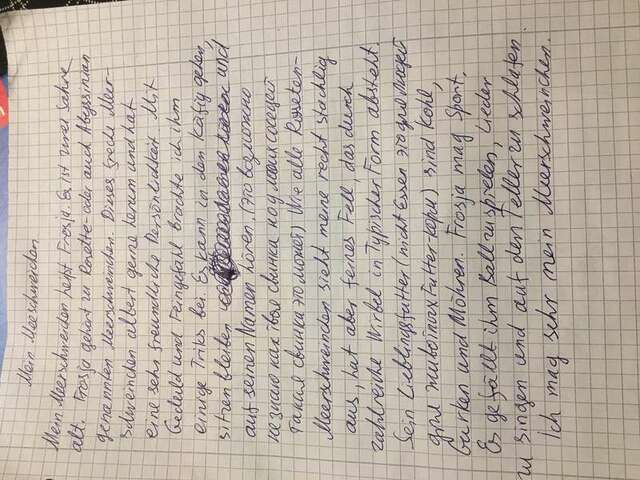 Mein Meerschweinchen
Mein Meerschweinchen heißt Frosja. Es ist zwei Jahre
alt. Frosja gehört zu Rosette- oder auch Abyssinian
genannten Meerschweinchen. Dieses freche Meer-
schweinchen albert gerne herum und hat
eine sehr freundliche Persönlichkeit. Mit
Geduld und Feingefühl brachte ich ihm
einige Triks bei. Es kann in den Käfig gehen,
sitzen bleiben und
auf seinen Namen hören. (Это возможно
не знаю как твоя свинка но у моих соседей
такая свинка это может) Wie alle Rosetten-
Meerschweinchen sieht meine recht stachlig
aus, hat aber feines Fell, das durch
zahlreiche Wirbel in typischer Form absteht.
Sein Lieblingsfutter (nicht Essen это для людей
для животных Futter-корм) sind Kohl,
Gurken und Möhren. Frosja mag Sport.
Es gefällt ihm Ball zu spielen, Lieder
zu singen und auf dem Teller zu schlafen.
Ich mag sehr mein Meerschweinchen.